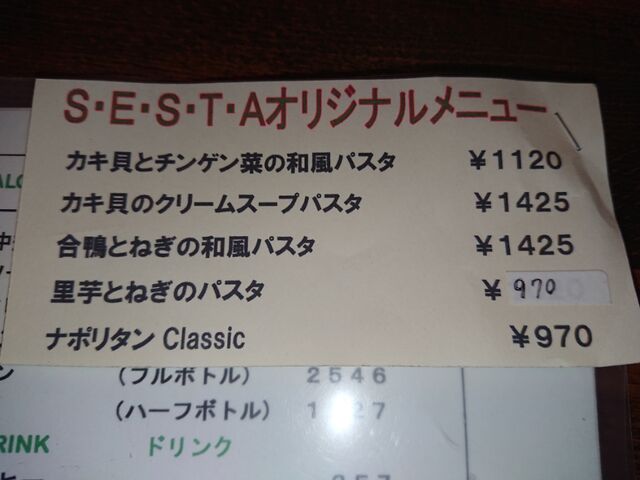 S・E・S・T・Aオリジナルメニュー
カキ貝とチンゲン菜の和風パスタ ￥1120
カキ貝のクリームスープパスタ ￥1425
合鴨とねぎの和風パスタ ￥1425
里芋とねぎのパスタ ￥970
ナポリタン Classic ￥970
(フルボトル) 2546
(ハーフボトル)
RINK ドリンク